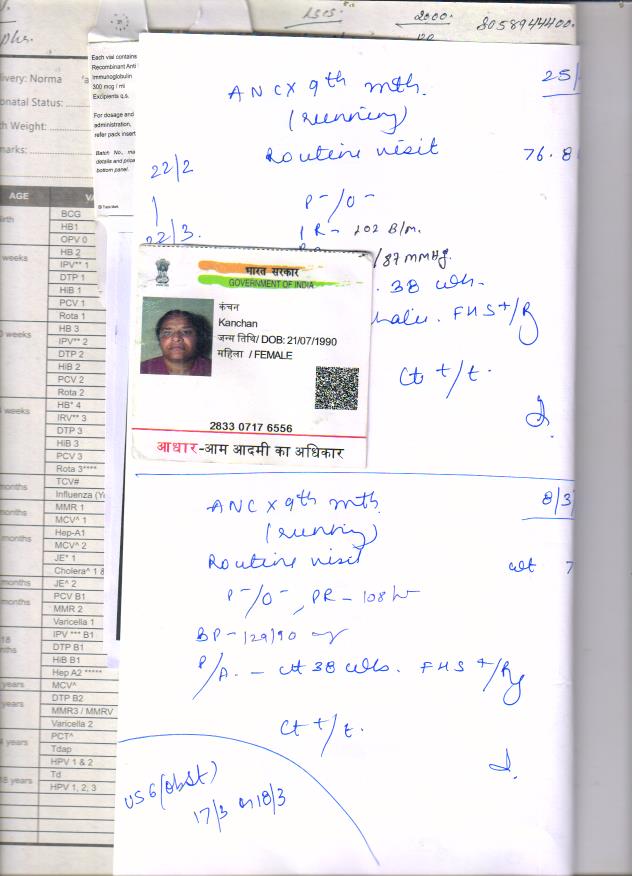 2000.
8058944400.
Each vial contains
Recombinant Anti
Immunoglobulin
300 mcg / ml
Excipients q.s.
For dosage and
administration,
refer pack insert
Batch No., ma
details and price
bottom panel.
ivery: Norma
onatal Status:
h Weight:
marks:
AGE
BCG
HB1
OPV 0
HB 2
IPV** 1
DTP 1
HiB 1
PCV 1
Rota 1
HB 3
IPV** 2
DTP 2
HiB 2
PCV 2
Rota 2
HB* 4
IRV** 3
DTP 3
HiB 3
PCV 3
Rota 3****
TCV#
Influenza (Y
MMR 1
MCV^ 1
Hep-A1
MCV^ 2
JE* 1
Cholera^ 1 &
JE^ 2
PCV B1
MMR 2
Varicella 1
IPV *** B1
DTP B1
HiB B1
Hep A2 *****
MCV^
DTP B2
MMR3 / MMRV
Varicella 2
PCT^
Tdap
HPV 1 & 2
Td
HPV 1, 2, 3
weeks
months
years
ANC x 9th mth. 25/
(running)
Routine visit 76.8
22/2
22/3.
P-/O-
PR- 102 B/m.
/87 mmHg.
38 wks.
FHS +/R
Ct +/t.
भारत सरकार
GOVERNMENT OF INDIA
कंचन
Kanchan
जन्म तिथि/ DOB: 21/07/1990
महिला / FEMALE
2833 0717 6556
आधार-आम आदमी का अधिकार
ANC x 9th mth. 8/3
(running)
Routine visit wt 7
P-/O-, PR - 108
BP - 129/90
P/A. - ct 38 wks. FHS +/Rg
Ct +/t.
USG (Obst)
17/3 on 18/3